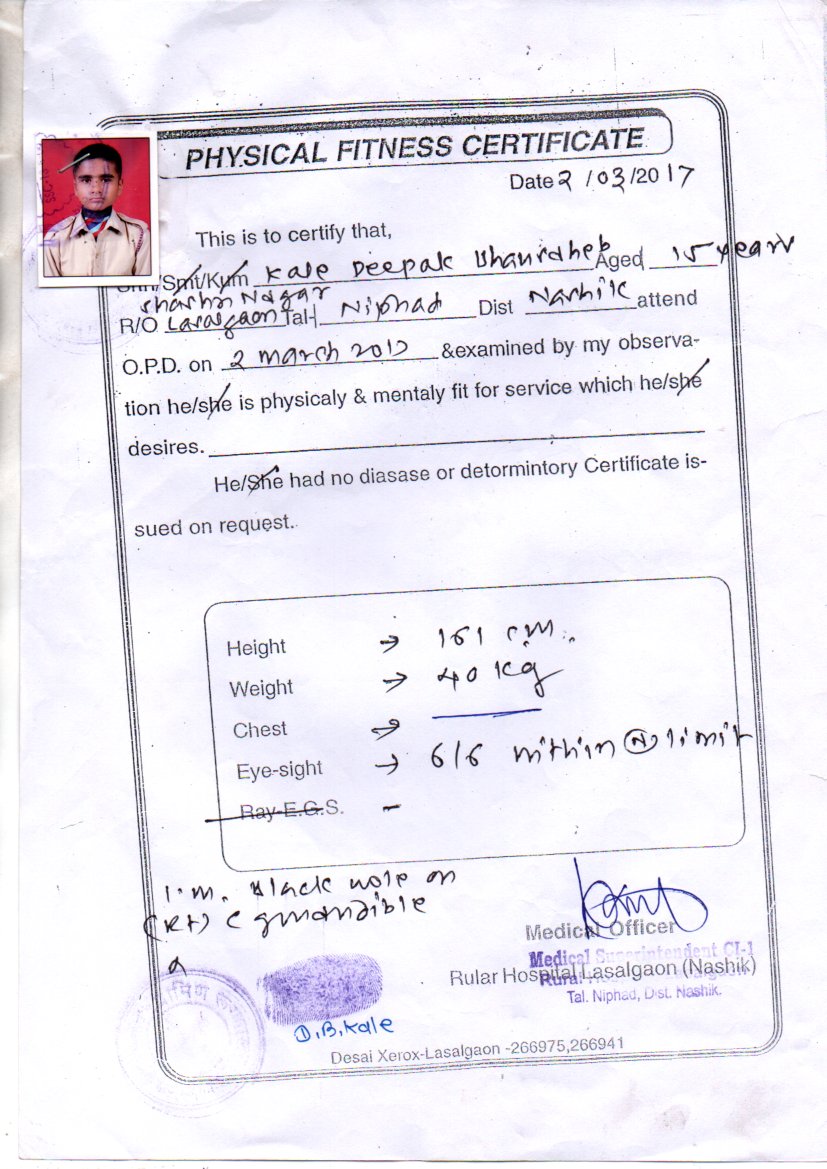 PHYSICAL FITNESS CERTIFICATE
Date 2 /03/2017
This is to certify that,
Shri/Smt/Kum Kale Deepak Bhausaheb Aged 15 years
Shastri Nagar
R/O Lasalgaon Tal- Niphad Dist Nashik attend
O.P.D. on 2 March 2017 &examined by my observa-
tion he/she is physicaly & mentaly fit for service which he/she
desires.
He/She had no diasase or detormintory Certificate is-
sued on request.
Height → 161 cm.
Weight → 40 kg
Chest →
Eye-sight → 6/6 within (N) limit
Ray-E.G.S. -
I.M. Black mole on
(Rt)
Medical Officer
Medical Superintendent Cl-1
Rular Hospital Lasalgaon (Nashik)
Rural
Tal. Niphad, Dist. Nashik.
D.B.Kale
Desai Xerox-Lasalgaon -266975,266941